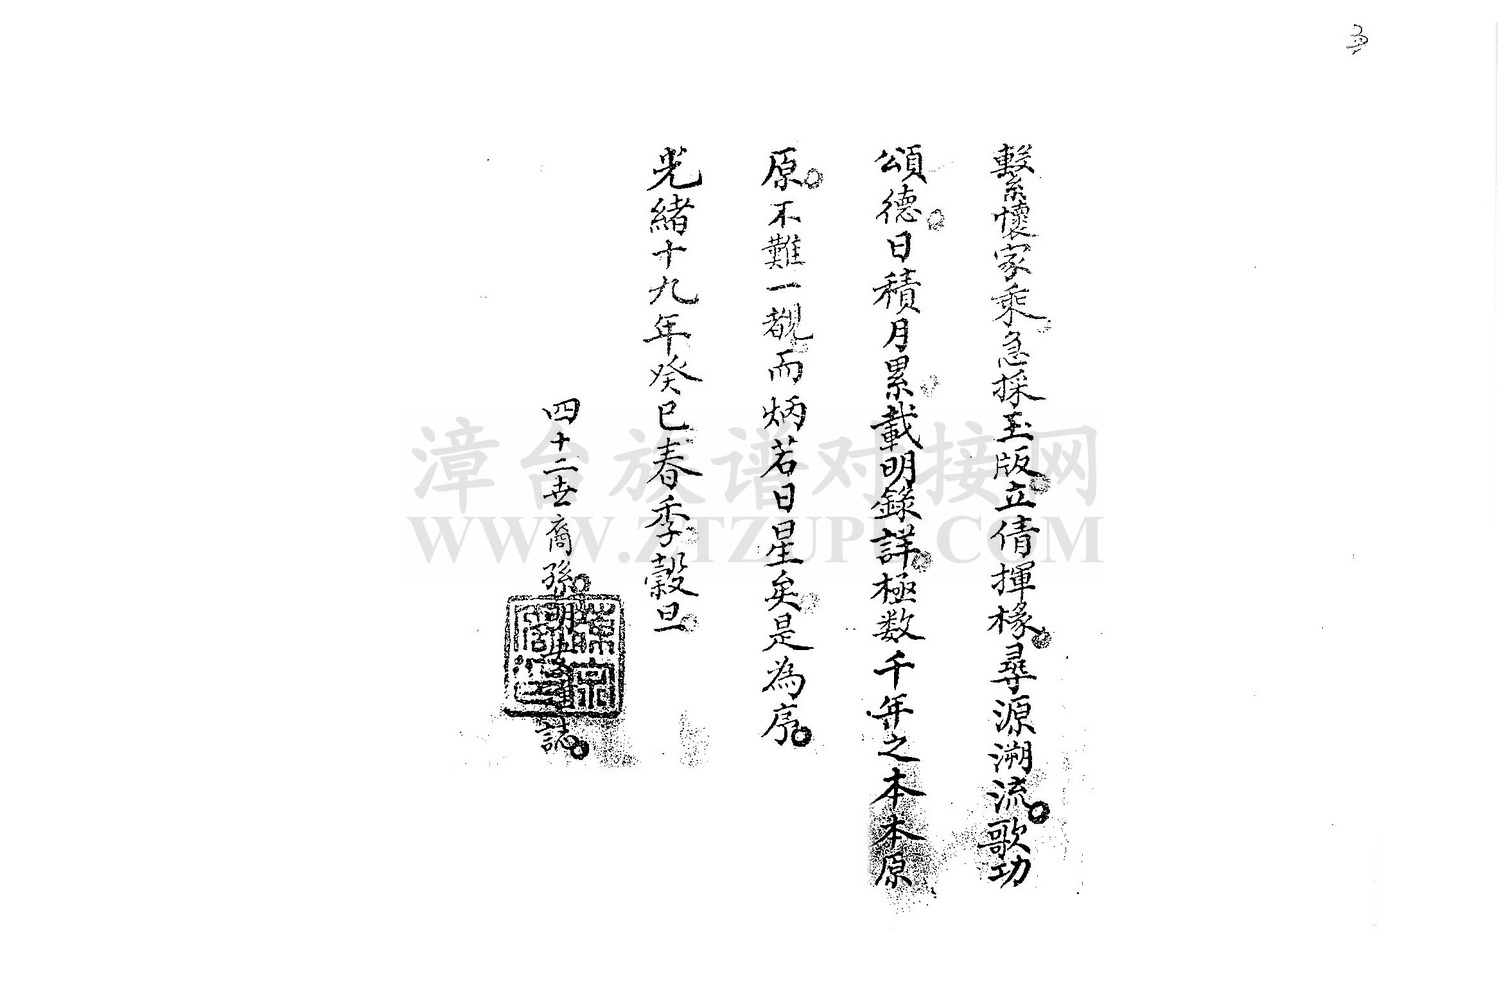 繫懷家乘急採玉版立倩揮椽尋源溯流歌功
頌德日積月累載明錄詳極数千年之本本原
原不難一覩而炳若日星矣是為序
光緒十九年癸巳春季穀旦
四十二世裔孫明 誌
漳台族谱对接网
WWW.ZTZUPU.COM